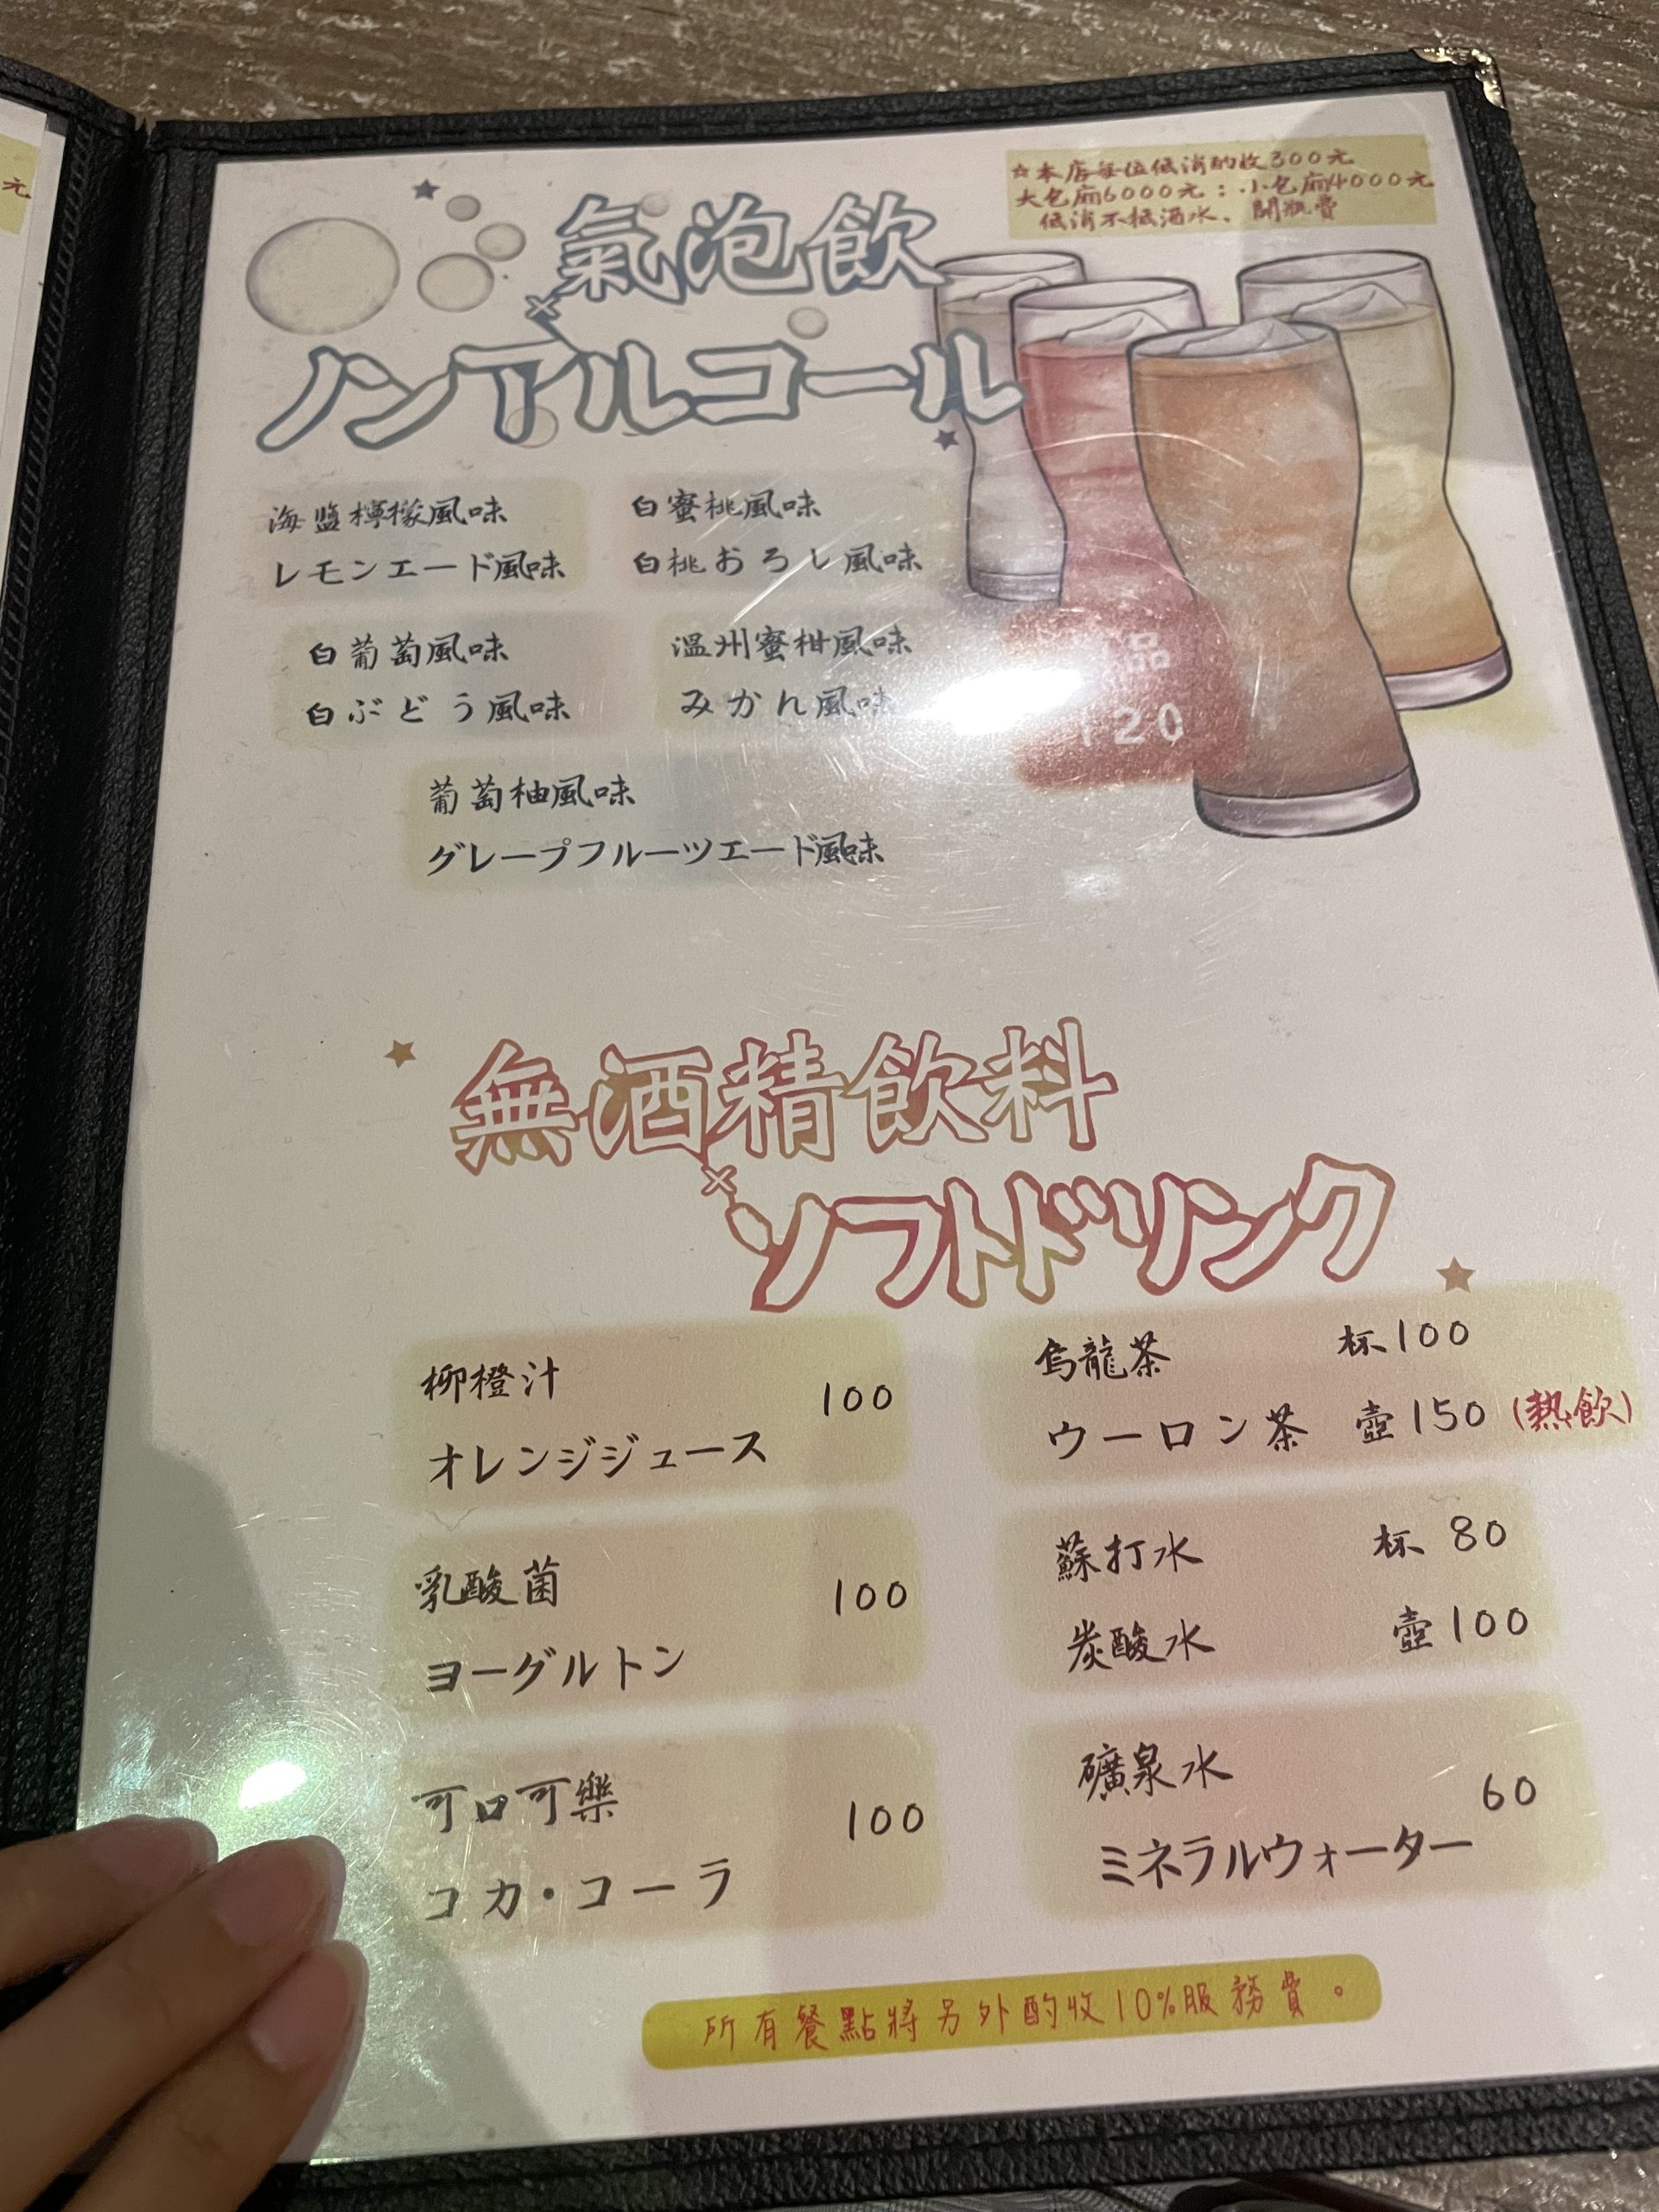 元
☆本店每位低消酌收300元
大包廂6000元:小包廂4000元
低消不抵酒水、開瓶費
氣泡飲
×
ノンアルコール
海盬檸檬風味
レモンエード風味
白蜜桃風味
白桃おろし風味
白葡萄風味
白ぶどう風味
溫州蜜柑風味
みかん風味
品
120
葡萄柚風味
グレープフルーツエード風味
無酒精飲料
×
ソフトドリンク
柳橙汁 100
オレンジジュース
乳酸菌 100
ヨーグルトン
可口可樂 100
コカ・コーラ
烏龍茶 杯100
ウーロン茶 壺150 (熱飲)
蘇打水 杯 80
炭酸水 壺100
礦泉水 60
ミネラルウォーター
所有餐點將另外酌收10%服務費。